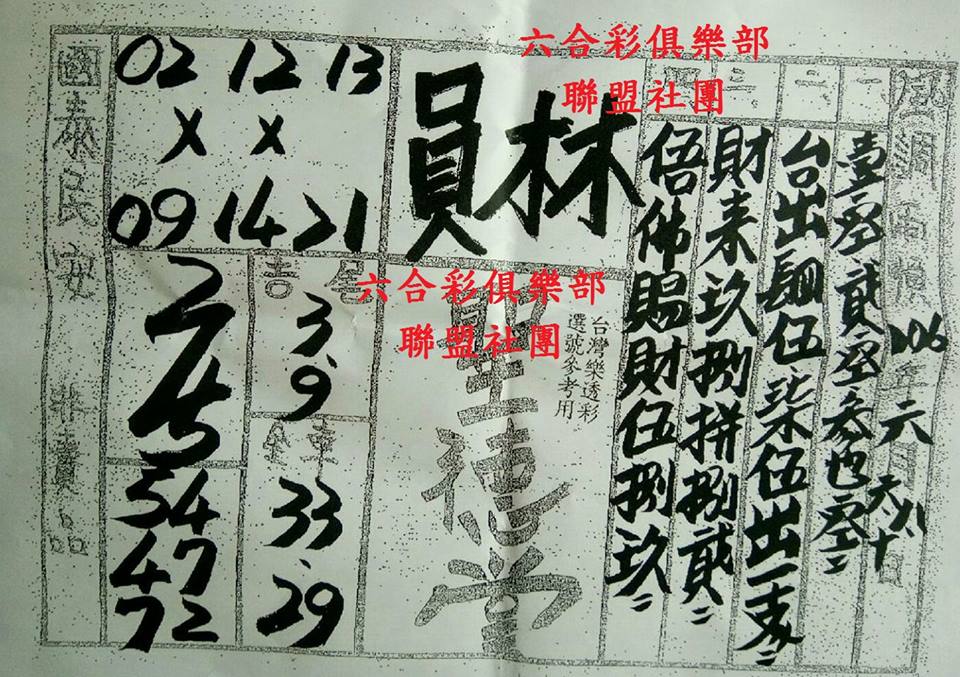 六合彩俱樂部
聯盟社團
風調雨順
106年六月六八十日
一
二
三
四
壹零貳零叁也零
台出肆伍柒伍出一支
財來玖捌拼捌貳
伍佛賜財伍捌玖
員林
台灣樂透彩
選號參考用
聖德堂
六合彩俱樂部
聯盟社團
02 12 13
X X
09 14 21
3.9
33
29
2
45
54
47
72
國泰民安
非賣品